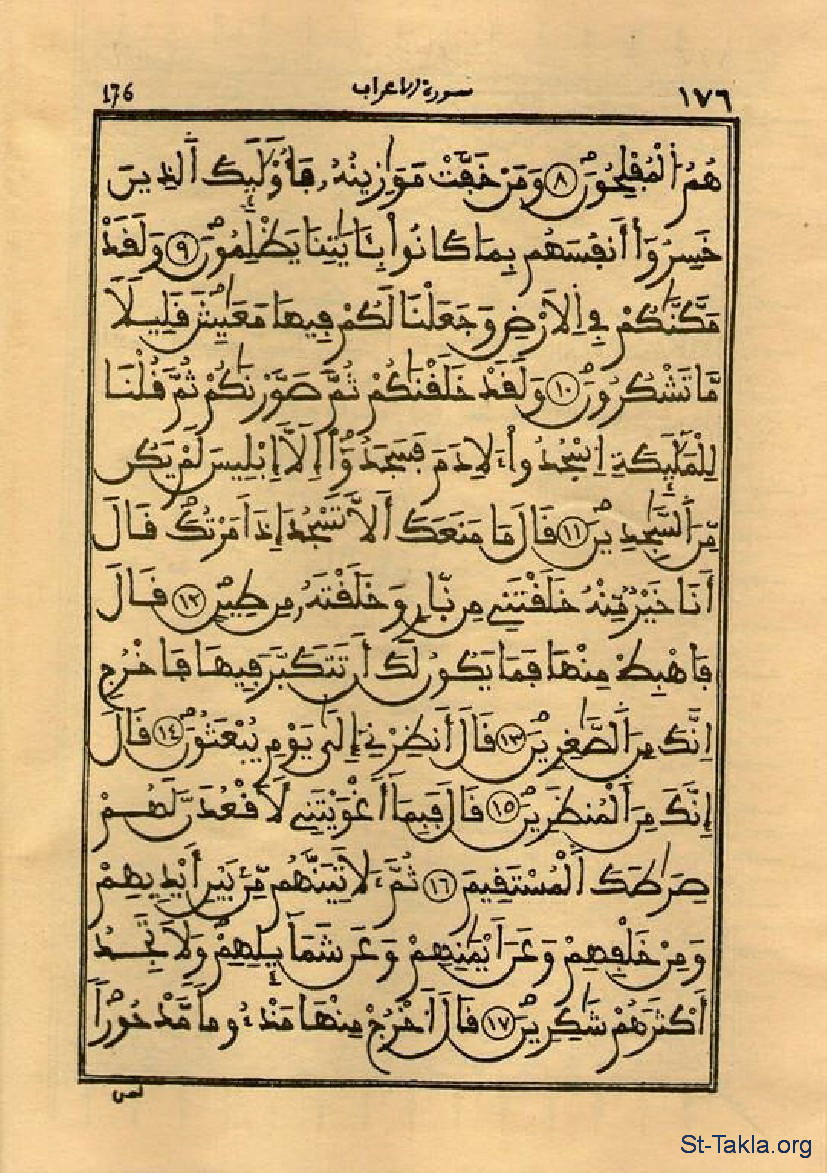 ١٧٦ سورة الاعراف 176
هُمُ الْمُفْلِحُونَ ٨ وَمَنْ خَفَّتْ مَوَازِينُهُ فَأُوْلَٰئِكَ الَّذِينَ
خَسِرُوا أَنفُسَهُم بِمَا كَانُوا بِـَٔايَٰتِنَا يَظْلِمُونَ ٩ وَلَقَدْ
مَكَّنَّٰكُمْ فِي الَارْضِ وَجَعَلْنَا لَكُمْ فِيهَا مَعَٰيِشَ قَلِيلًا
مَّا تَشْكُرُونَ ١٠ وَلَقَدْ خَلَقْنَٰكُمْ ثُمَّ صَوَّرْنَٰكُمْ ثُمَّ قُلْنَا
لِلْمَلَٰئِكَةِ اسْجُدُوا ءَلِادَمَ فَسَجَدُوا إِلَّا إِبْلِيسَ لَمْ يَكُن
مِّنَ السَّٰجِدِينَ ١١ قَالَ مَا مَنَعَكَ أَلَّا تَسْجُدَ إِذَ امَرْتُكَ قَالَ
أَنَا خَيْرٌ مِّنْهُ خَلَقْتَنِي مِن نَّارٍ وَخَلَقْتَهُ مِن طِينٍ ١٢ قَالَ
فَاهْبِطْ مِنْهَا فَمَا يَكُونُ لَكَ أَن تَتَكَبَّرَ فِيهَا فَاخْرُجِ
اِنَّكَ مِنَ الصَّٰغِرِينَ ١٣ قَالَ أَنظِرْنِي إِلَىٰ يَوْمِ يُبْعَثُونَ ١٤ قَالَ
إِنَّكَ مِنَ الْمُنظَرِينَ ١٥ قَالَ فَبِمَا أَغْوَيْتَنِي لَأَقْعُدَنَّ لَهُمْ
صِرَٰطَكَ الْمُسْتَقِيمَ ١٦ ثُمَّ ءَلَاتِيَنَّهُم مِّنْ بَيْنِ أَيْدِيهِمْ
وَمِنْ خَلْفِهِمْ وَعَنَ أَيْمَٰنِهِمْ وَعَن شَمَائِلِهِمْ وَلَا تَجِدُ
أَكْثَرَهُمْ شَٰكِرِينَ ١٧ قَالَ أَخْرُجْ مِنْهَا مَذْءُومًا مَّدْحُورًا
لمن
St-Takla.org